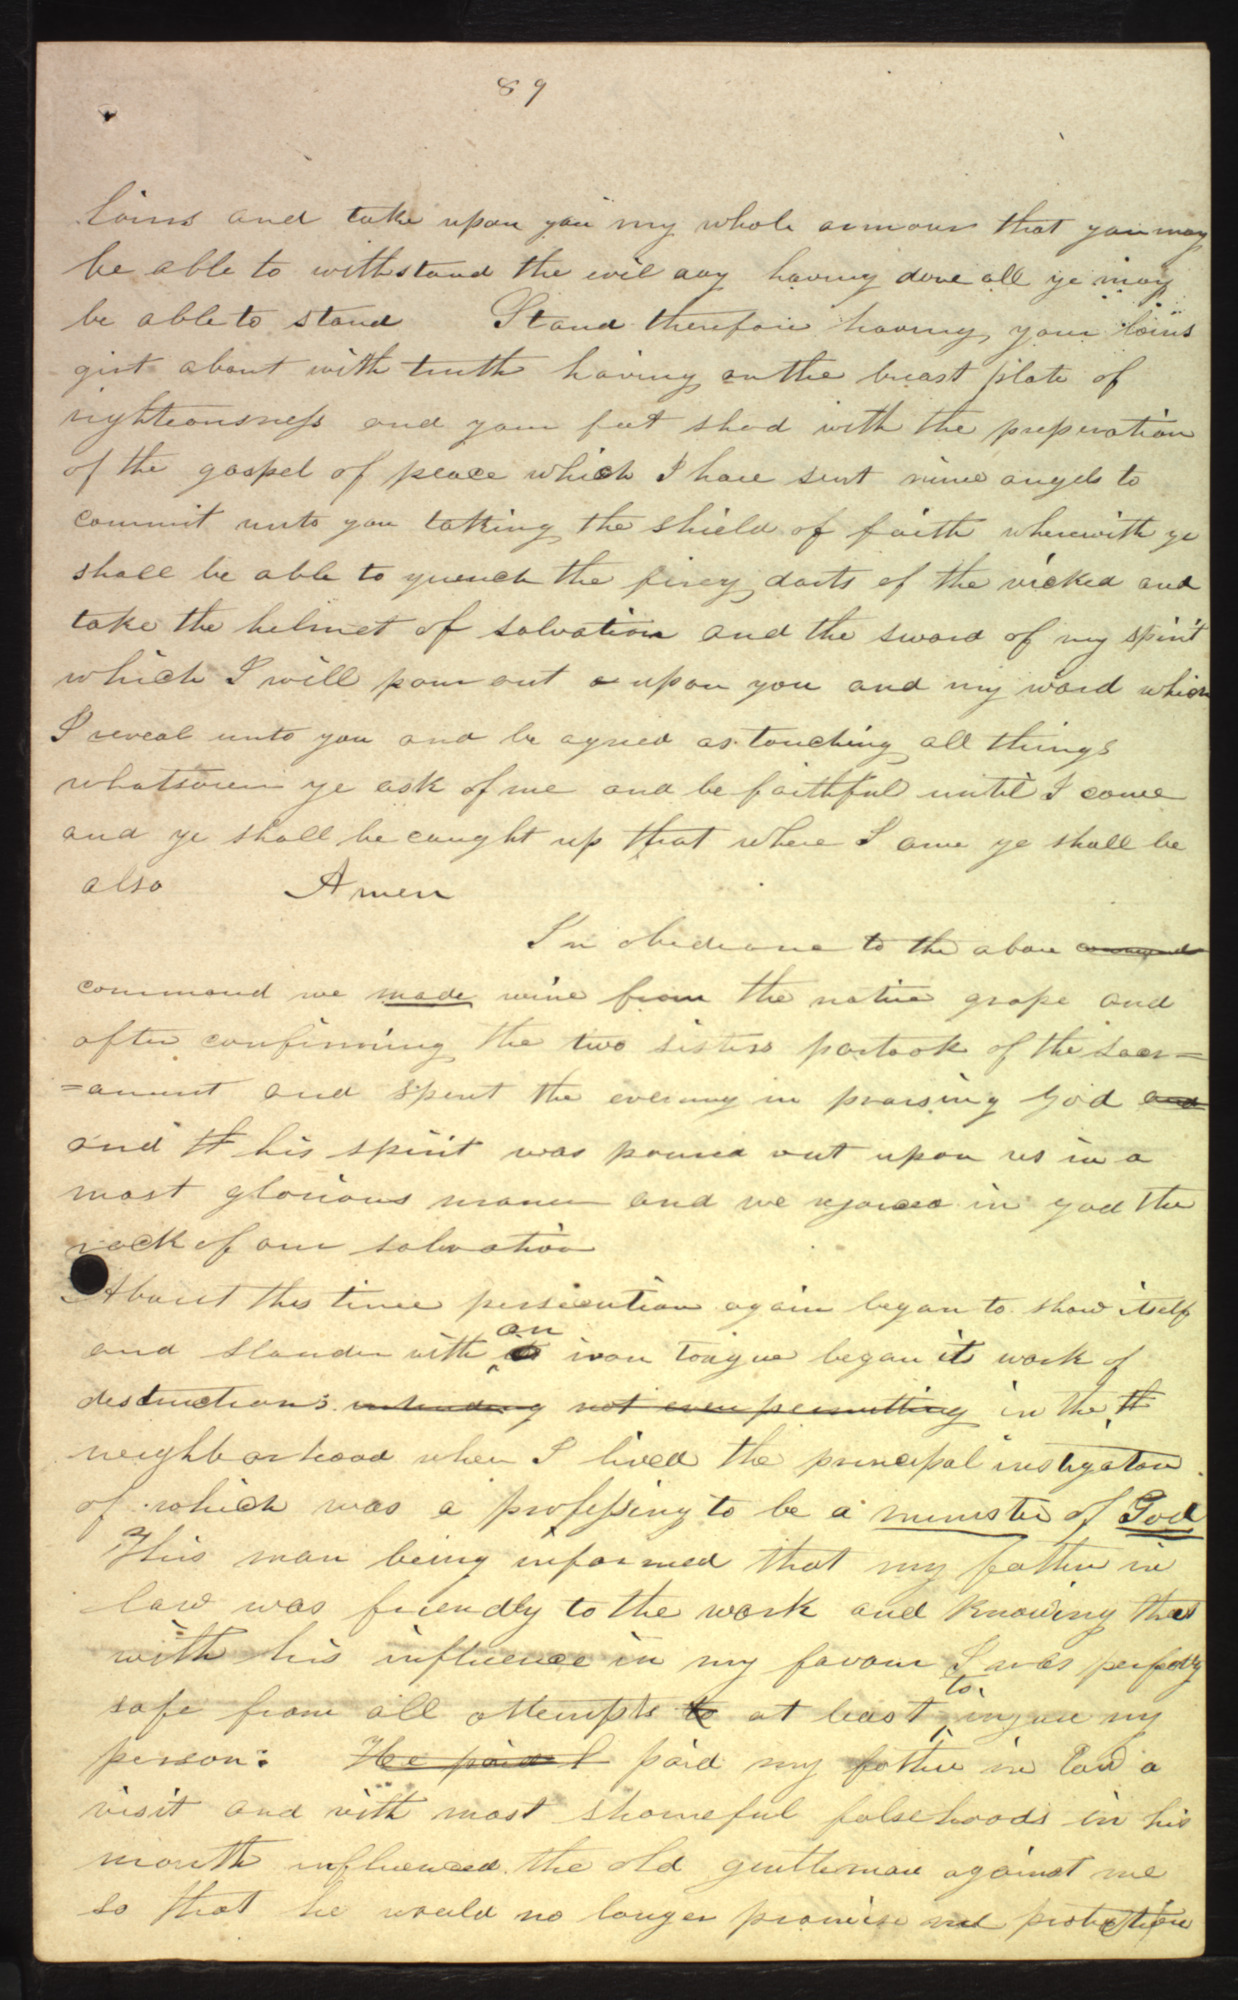 89
loins and take upon you my whole armour that you may
be able to withstand the evil day having done all ye may
be able to stand Stand therefore having your loins
girt about with truth having on the breast plate of
righteousness and your feet shod with the preperation
of the gospel of peace which I have sent mine angels to
commit unto you taking the shield of faith wherewith ye
shall be able to quench the firey darts of the wicked and
take the helmet of salvation and the sword of my spirit
which I will pour out a upon you and my word which
I reveal unto you and be agreed as touching all things
whatsoever ye ask of me and be faithful until I come
and ye shall be caught up that where I am ye shall be
also Amen
In obedience to the above command
command we made wine from the native grape and
after confirming the two sisters partook of the sacr=
=ament and spent the evening in praising God and
and th his spirit was poured out upon us in a
most glorious manner and we rejoiced in god the
rock of our salvation
About this time persecution again began to show itself
and slander with an iron tongue began its work of
destructions intending not even permitting in the th
neighborhood where I lived the principal instigator
of which was a professing to be a minister of God
This man being informed that my father in
law was friendly to the work and knowing that
with his influence in my favour I was perfectly
safe from all attempts to at least to injure my
person: He paid I paid my father in law a
visit and with most shameful falsehoods in his
mouth influenced the old gentleman against me
so that he would no longer promise me protection